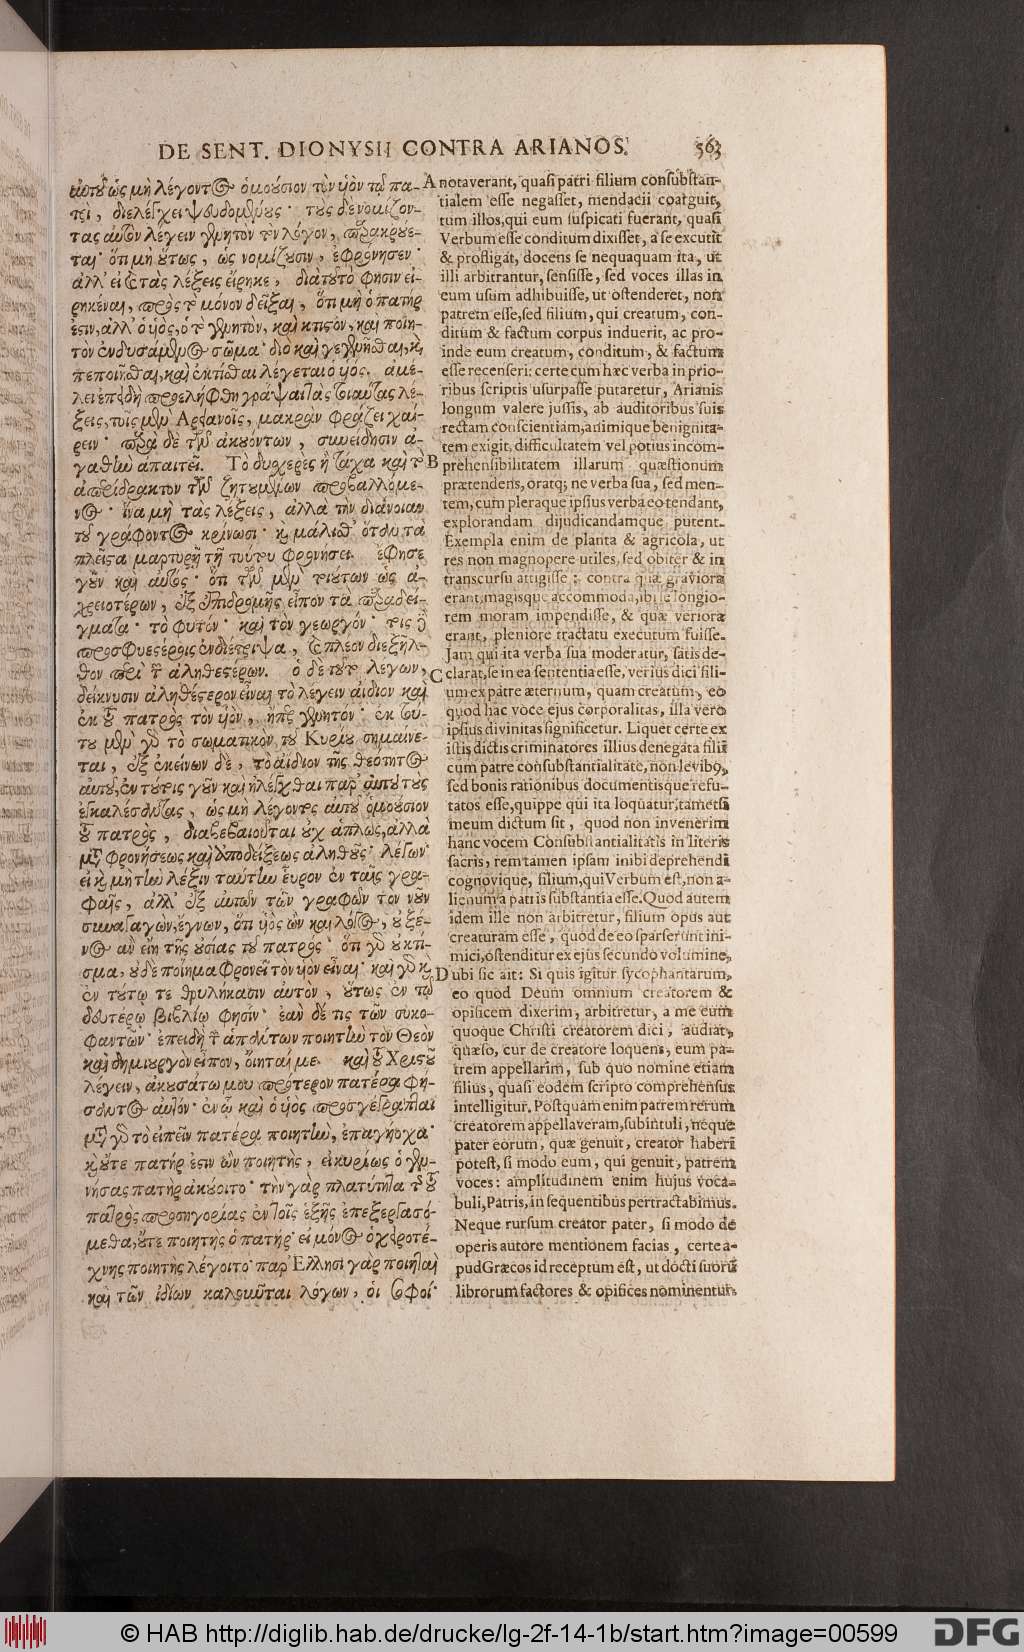 DE SENT. DIONYSII CONTRA ARIANOS. 563
αὐτοῦ ὡς μὴ λέγοντος ὁμούσιον τὸν υἱὸν τῷ πα-
τρὶ, διελέγχει ψευδομένους· τοὺς δὲ νομίζον-
τας αὐτὸν λέγειν γενητὸν τὸν λόγον, παρακρούε-
ται· ὅτι μὴ οὕτως, ὡς νομίζουσιν, ἐφρόνησεν·
ἀλλ' εἰ καὶ τὰς λέξεις εἴρηκε, διὰ τοῦτό φησιν εἰ-
ρηκέναι, πρὸς τὸ μόνον δεῖξαι, ὅτι μὴ ὁ πατήρ
ἐστιν, ἀλλ' ὁ υἱὸς, ὁ τὸ γενητὸν, καὶ κτιστὸν, καὶ ποιη-
τὸν ἐνδυσάμενος σῶμα· διὸ καὶ γεγενῆσθαι, καὶ
πεποιῆσθαι, καὶ ἐκτίσθαι λέγεται ὁ υἱός. ἀμέ-
λει ἐπειδὴ προελήφθη γράψαι τὰς τοιαύτας λέ-
ξεις, τοῖς μὲν Ἀρειανοῖς, μακρὰν φράζει χαί-
ρειν· παρὰ δὲ τῶν ἀκουόντων, συνείδησιν ἀ-
γαθὴν ἀπαιτεῖ. Τὸ δυσχερὲς ἢ τάχα καὶ τὸ
ἀπερίδρακτον τῶν ζητουμένων προβαλλόμε-
νος· ἵνα μὴ τὰς λέξεις, ἀλλὰ τὴν διάνοιαν
τοῦ γράφοντος κρίνωσι· καὶ μάλισθ' ὅτε αὐτὰ
πλεῖστα μαρτυρῇ τῇ τούτου φρονήσει. ἔφησε
γοῦν καὶ αὐτός· ὅτι τῶν μὲν τοιούτων ὡς ἀ-
χρειοτέρων, ἐξ ἐπιδρομῆς εἶπον τὰ παραδεί-
γματα· τὸ φυτόν· καὶ τὸν γεωργόν· τοῖς δὲ
προσφυεστέροις ἐνδιέτριψα, καὶ πλέον διεξῆλ-
θον περὶ τῶν ἀληθεστέρων. ὁ δὲ τοῦτο λέγων,
δείκνυσιν ἀληθέστερον εἶναι τὸ λέγειν ἀίδιον καὶ
ἐκ τοῦ πατρὸς τὸν υἱὸν, ἤπερ γενητόν· ἐκ τού-
του μὲν γὰρ τὸ σωματικὸν τοῦ Κυρίου σημαίνε-
ται, ἐξ ἐκείνων δὲ, τὸ ἀίδιον τῆς θεότητος
αὐτοῦ, ἐν τούτοις γοῦν καὶ ἠλέγχθαι παρ' αὐτοῦ τοὺς
ἐγκαλέσαντας, ὡς μὴ λέγοντος αὐτοῦ ὁμούσιον
τοῦ πατρὸς, διαβεβαιοῦται οὐχ ἁπλῶς, ἀλλὰ
μετὰ φρονήσεως καὶ ἀποδείξεως ἀληθοῦς· λέγων·
εἰ καὶ μὴ τὴν λέξιν ταύτην εὗρον ἐν ταῖς γρα-
φαῖς, ἀλλ' ἐξ αὐτῶν τῶν γραφῶν τὸν νοῦν
συναγαγὼν, ἔγνων, ὅτι υἱὸς ὢν καὶ λόγος, οὐ ξέ-
νος ἂν εἴη τῆς οὐσίας τοῦ πατρός· ὅτι γὰρ οὐ κτί-
σμα, οὐδὲ ποίημα φρονεῖ τὸν υἱὸν εἶναι· καὶ γὰρ καὶ
ἐν τούτῳ τε θρυλήκασιν αὐτὸν, οὕτως ἐν τῷ
δευτέρῳ βιβλίῳ φησίν· ἐὰν δέ τις τῶν συκο-
φαντῶν· ἐπειδὴ τῶν ἁπάντων ποιητὴν τὸν Θεὸν
καὶ δημιουργὸν εἶπον, οἴηταί με καὶ τοῦ Χριστοῦ
λέγειν, ἀκουσάτω μου πρότερον πατέρα φή-
σαντος αὐτόν· ἐν ᾧ καὶ ὁ υἱὸς προσγέγραπται
μετὰ γὰρ τὸ εἰπεῖν πατέρα ποιητὴν, ἐπαγήοχα·
καὶ οὔτε πατήρ ἐστιν ὧν ποιητής, εἰ κυρίως ὁ γεν-
νήσας πατὴρ ἀκούοιτο· τὴν γὰρ πλατύτητα τῆς τοῦ
πατρὸς προσηγορίας ἐν τοῖς ἑξῆς ἐπεξεργασό-
μεθα, οὔτε ποιητὴς ὁ πατὴρ· εἰ μόνος ὁ χειροτέ-
χνης ποιητὴς λέγοιτο· παρ' Ἕλλησι γὰρ ποιηταὶ
καὶ τῶν ἰδίων καλοῦνται λόγων, οἱ σοφοί·
A notaverant, quasi patri filium consubstan-
tialem esse negasset, mendacii coarguit,
tum illos, qui eum suspicati fuerant, quasi
Verbum esse conditum dixisset, a se excutit
& profligat, docens se nequaquam ita, ut
illi arbitrantur, sensisse, sed voces illas in
eum usum adhibuisse, ut ostenderet, non
patrem esse, sed filium, qui creatum, con-
ditum & factum corpus induerit, ac pro-
inde eum creatum, conditum, & factum
esse recenseri: certe cum hæc verba in prio-
ribus scriptis usurpasse putaretur, Arianis
longum valere jussis, ab auditoribus suis
rectam conscientiam, animique benignita-
tem exigit, difficultatem vel potius incom-
B prehensibilitatem illarum quæstionum
prætendens, oratq; ne verba sua, sed men-
tem, cum pleraque ipsius verba eo tendant,
explorandam dijudicandamque putent.
Exempla enim de planta & agricola, ut
res non magnopere utiles, sed obiter & in
transcursu attigisse: contra quæ graviora
erant, magisque accommoda, ibi se longio-
rem moram impendisse, & quæ veriora
erant, pleniore tractatu executum fuisse.
Jam qui ita verba sua moderatur, satis de-
C clarat, se in ea sententia esse, verius dici fili-
um ex patre æternum, quam creatum, eo
quod hac voce ejus corporalitas, illa vero
ipsius divinitas significetur. Liquet certe ex
istis dictis criminatores illius denegata filii
cum patre consubstantialitate, non levib9,
sed bonis rationibus documentisque refu-
tatos esse, quippe qui ita loquatur, tametsi
meum dictum sit, quod non invenerim
hanc vocem Consubstantialitatis in literis
sacris, rem tamen ipsam inibi deprehendi
cognovique, filium, qui Verbum est, non a-
lienum a patris substantia esse. Quod autem
idem ille non arbitretur, filium opus aut
creaturam esse, quod de eo sparserunt ini-
mici, ostenditur ex ejus secundo volumine,
D ubi sic ait: Si quis igitur sycophantarum,
eo quod Deum omnium creatorem &
opificem dixerim, arbitretur, a me eum
quoque Christi creatorem dici, audiat,
quæso, cur de creatore loquens, eum pa-
trem appellarim, sub quo nomine etiam
filius, quasi eodem scripto comprehensus
intelligitur. Postquam enim patrem rerum
creatorem appellaveram, subintuli, neque
pater eorum, quæ genuit, creator haberi
potest, si modo eum, qui genuit, patrem
voces: amplitudinem enim hujus voca-
buli, Patris, in sequentibus pertractabimus.
Neque rursum creator pater, si modo de
operis autore mentionem facias, certe a-
pud Græcos id receptum est, ut docti suorũ
librorum factores & opifices nominentur.
© HAB http://diglib.hab.de/drucke/lg-2f-14-1b/start.htm?image=00599
DFG